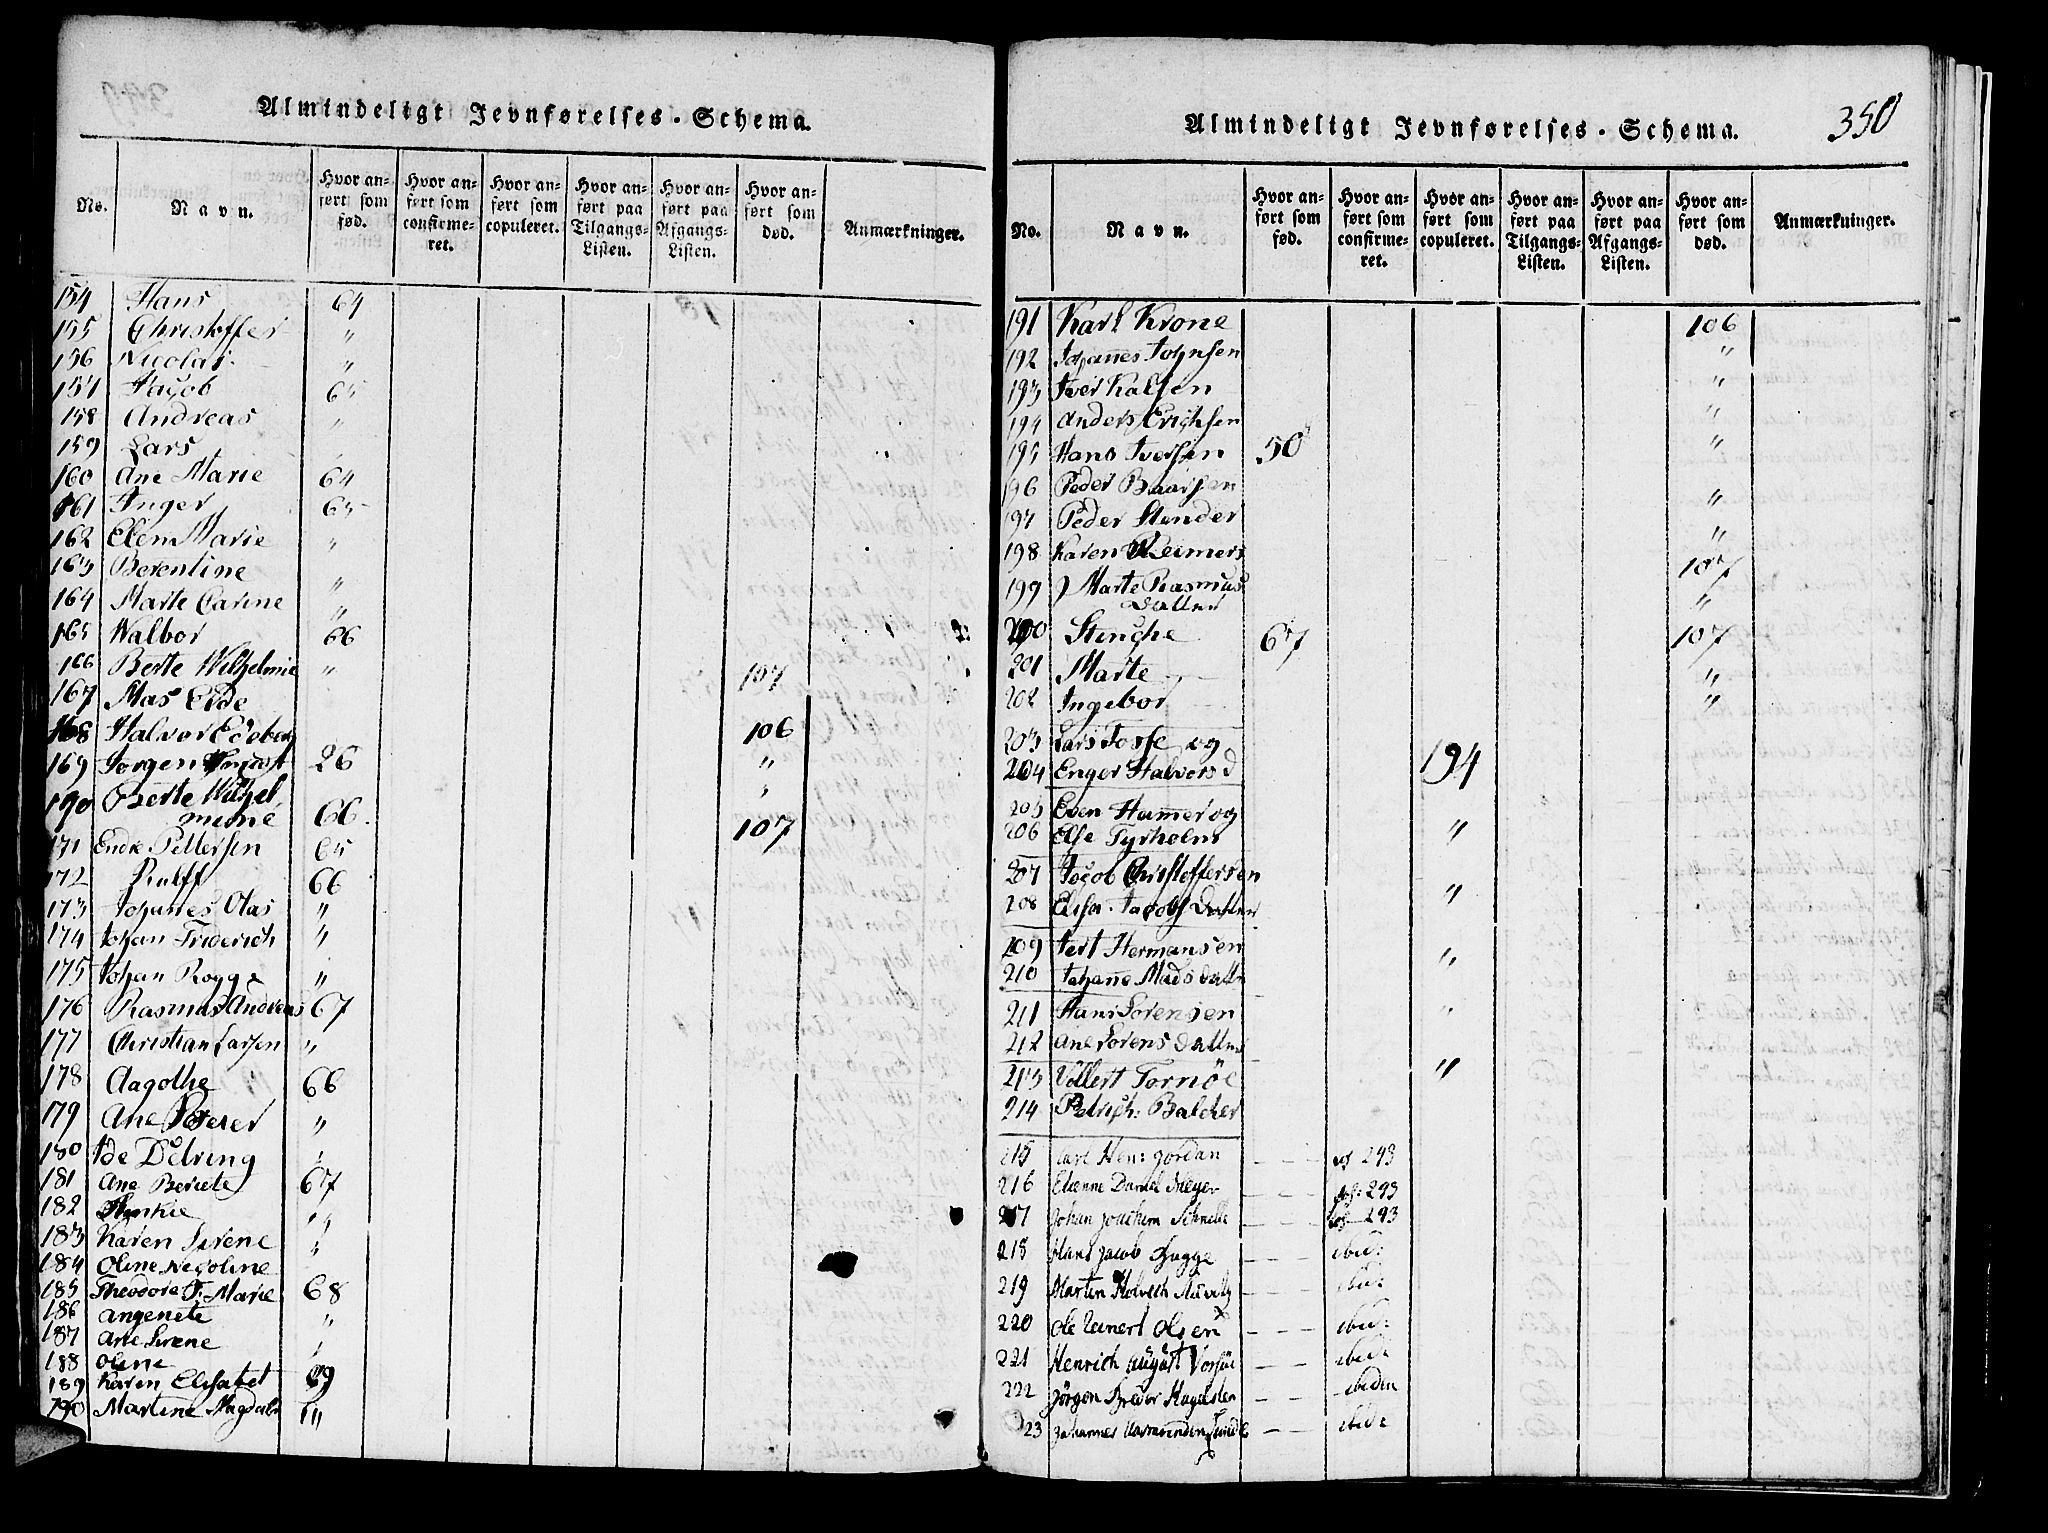 Almindeligt Jevnførelses-Schema.
No.
Navn.
Hvor anført som fød.
Hvor anført som confirmeret.
Hvor anført som copuleret.
Hvor anført paa Tilgangs-Listen.
Hvor anført paa Afgangs-Listen.
Hvor anført som død.
Anmærkninger.
154 Hans 64
155 Christoffer "
156 Nicolai "
157 Jacob 65
158 Andreas "
159 Lars
160 Ane Marie 64
161 Inger 65
162 Elen Marie "
163 Berentine "
164 Marte Carine "
165 Walbor 66
166 Berte Wilhelmine " 107
167 Mas Elde
168 Halvor Edeberg 106
169 Jørgen 26 "
190 Berte Wilhel "
mine 66 107
171 Endre Pettersen 65
172 Rulff 66
173 Johannes Olas "
174 Johan Friderich "
175 Johan Rogge "
176 Rasmus Andreas 67
177 Christian Larsen "
178 Aagothe 66
179 Ane "
180 Ide Detring "
181 Ane Berete 67
182
183 Karen Serene "
184 Oline Nicoline
185 Theodore F: Marie 68
186 Angenete "
187 Ane Serene "
188 Oline
189 Karen Elisabet 69
190 Martine Magdale "
Almindeligt Jevnførelses-Schema.
350
No.
Navn.
Hvor anført som fød.
Hvor anført som confirmeret.
Hvor anført som copuleret.
Hvor anført paa Tilgangs-Listen.
Hvor anført paa Afgangs-Listen.
Hvor anført som død.
Anmærkninger.
191 Karl Krone 106
192 Johannes Johnsen "
193 Iver Kalsen "
194 Anders Erichsen "
195 Hans Iversen 50 "
196 Peder Baarsen "
197 Peder Stender "
198 Karen Reimers 107
199 Marte Rasmus
datter "
200 Stinche 67 107
201 Marte "
202 Ingebor "
203 Lars Fosse og
204 Enger Halvors d 194
205 Even Hammer og
206 Else Tyrholm "
207 Jacob Christoffersen
208 Elisa Jacobs datter "
209 Tert Hermansen
210 Johanne Mads datter "
211 Hans Sørensen "
212 Ane Sørens datter
213 Vollert Tornøe "
214 Petrich: Balcher
215 Carl Hen: Jordan 293
216 Etienne Daniel Meyer 293
217 Johan Joachim Schnelle 293
218 Hans Jacob Bugge ibid:
219 Morten ibid:
220 Ole Reinert Olsen ibid:
221 Henrich August ibid:
222 Jørgen ibidem
23 Johannes ibid: